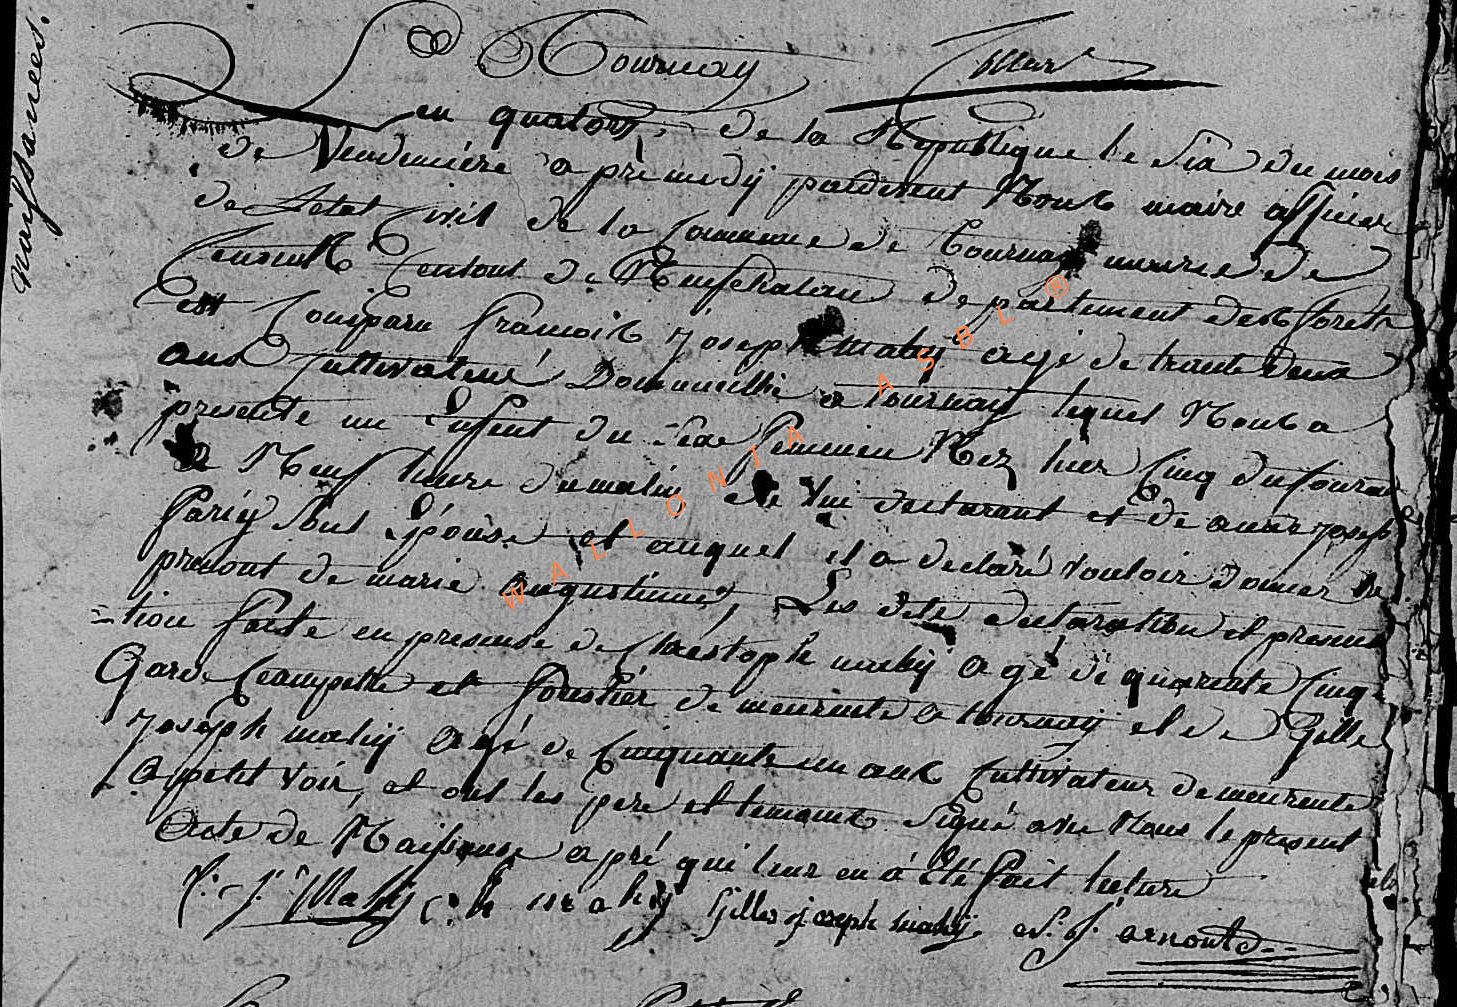 naissances.
Tournay
L'en quatorze de la République le Six du mois
de Vendemiére apré midÿ pardevent Nous maire officier
de L'etat Civil de la Commune de Tournay mairie de
Canton de Neufchateau departement des forets
Est Comparu francois Joseph mahÿ agé de trante deux
ans Cultivateur Domicillié a tournay lequel Nous a
presenté un Enfent du Sexe feminin Nez hier Cinq du Courant
a Neuf heure du matin de lui declarant et de anne Joseph
Parÿ Sont Epouse et auquel il a declaré Vouloir donner les
prenont de marie Augustinne, Les dete declaration et presenta
=tion faite en presense de Chrestoph mahÿ agé de quarente Cinq
Garde Champette et forestiér demeurente a tournay et de Gille
Joseph mahÿ agé de Cinquante un ans Cultivateur demeurente
a petit voir, et ont les pere et temoins Signé avec Nous le present
Acte de Naissense apré qui leur en á été fait lecture
f. J. Mahÿ C: h mahÿ Gilles joseph mahÿ. J. arnould
WALLONIA ASBL ®